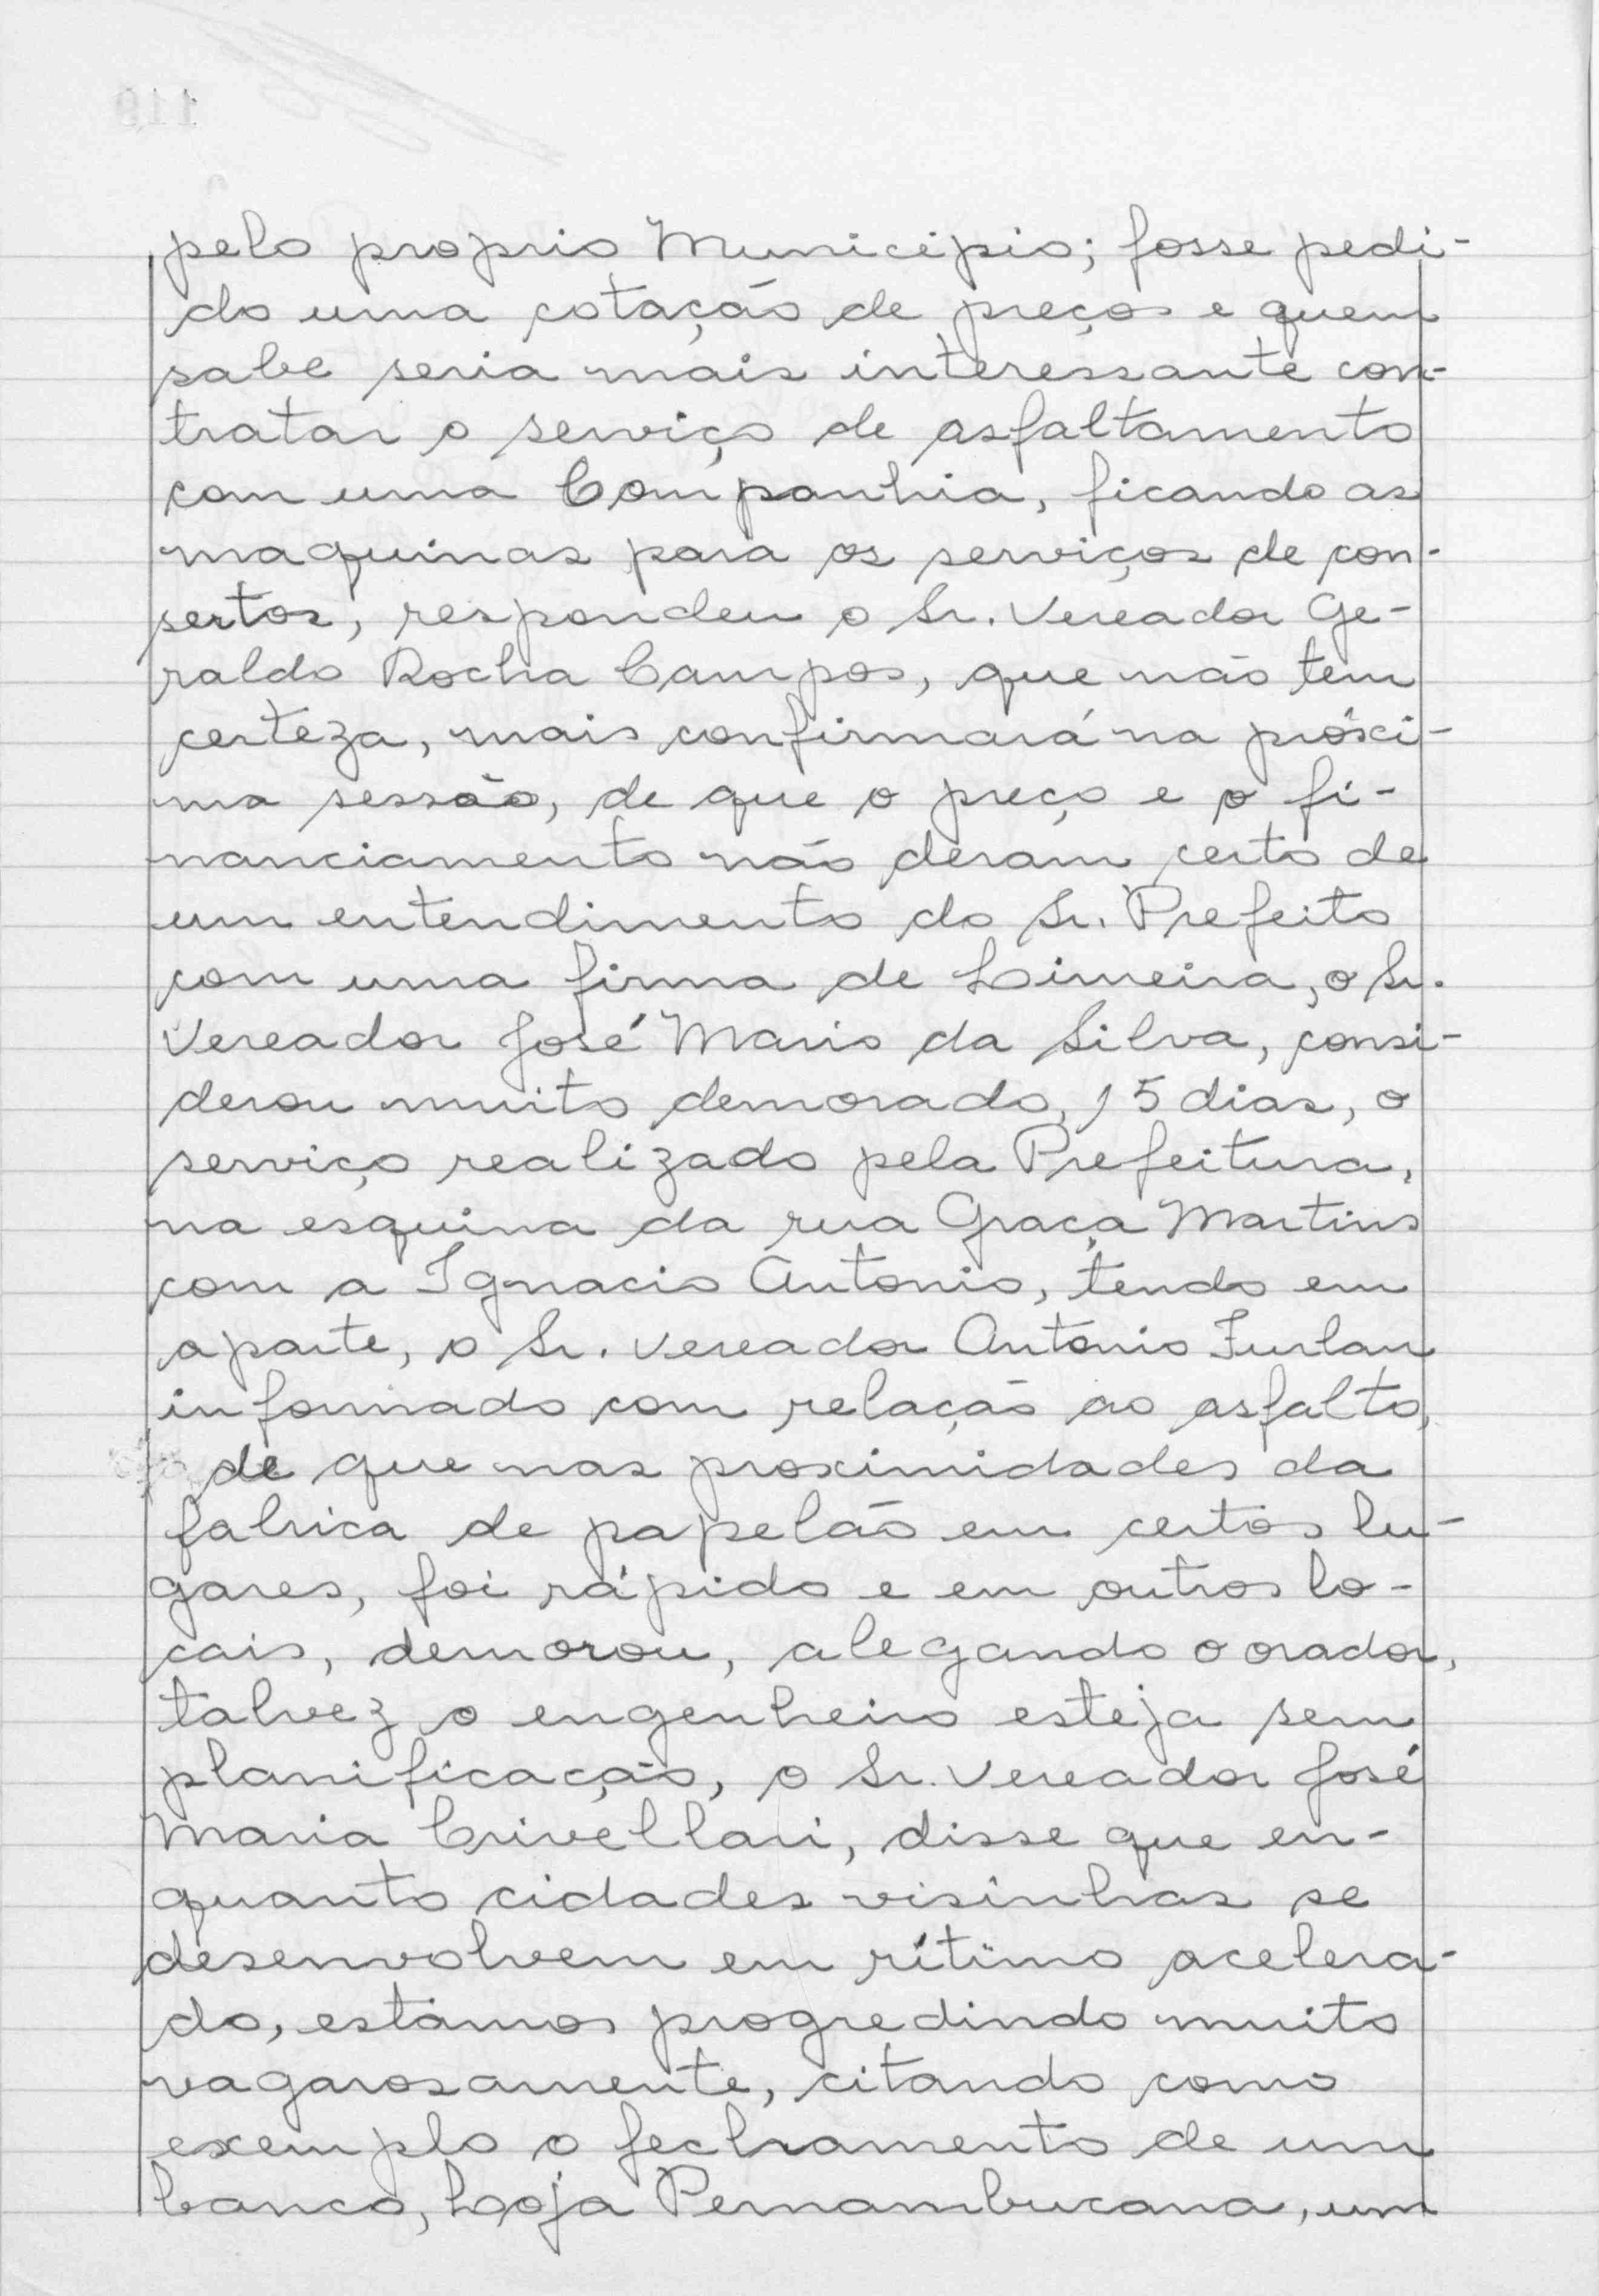 pelo proprio Municipio; fosse pedi-
do uma cotação de preços e quem
sabe seria mais interessante con-
tratar o serviço de asfaltamento
com uma Companhia, ficando as
maquinas para os serviços de con-
sertos, respondeu o Sr. Vereador Ge-
raldo Rocha Campos, que não tem
certeza, mais confirmará na próxi-
ma sessão, de que o preço e o fi-
nanciamento não deram certo de
um entendimento do Sr. Prefeito
com uma firma de Limeira, o Sr.
Vereador José Mario da Silva, consi-
derou muito demorado, 15 dias, o
serviço realizado pela Prefeitura,
na esquina da rua Graça Martins
com a Ignacio Antonio, tendo em
aparte, o Sr. Vereador Antonio Furlan
informado com relação ao asfalto,
de que nas proximidades da
fabrica de papelão em certos lu-
gares, foi rápido e em outros lo-
cais, demorou, alegando o orador,
talvez o engenheiro esteja sem
planificação, o Sr. Vereador José
Maria Crivellari, disse que en-
quanto cidades visinhas se
desenvolvem em rítimo acelera-
do, estamos progredindo muito
vagarosamente, citando como
exemplo o fechamento de um
banco, Loja Pernambucana, um